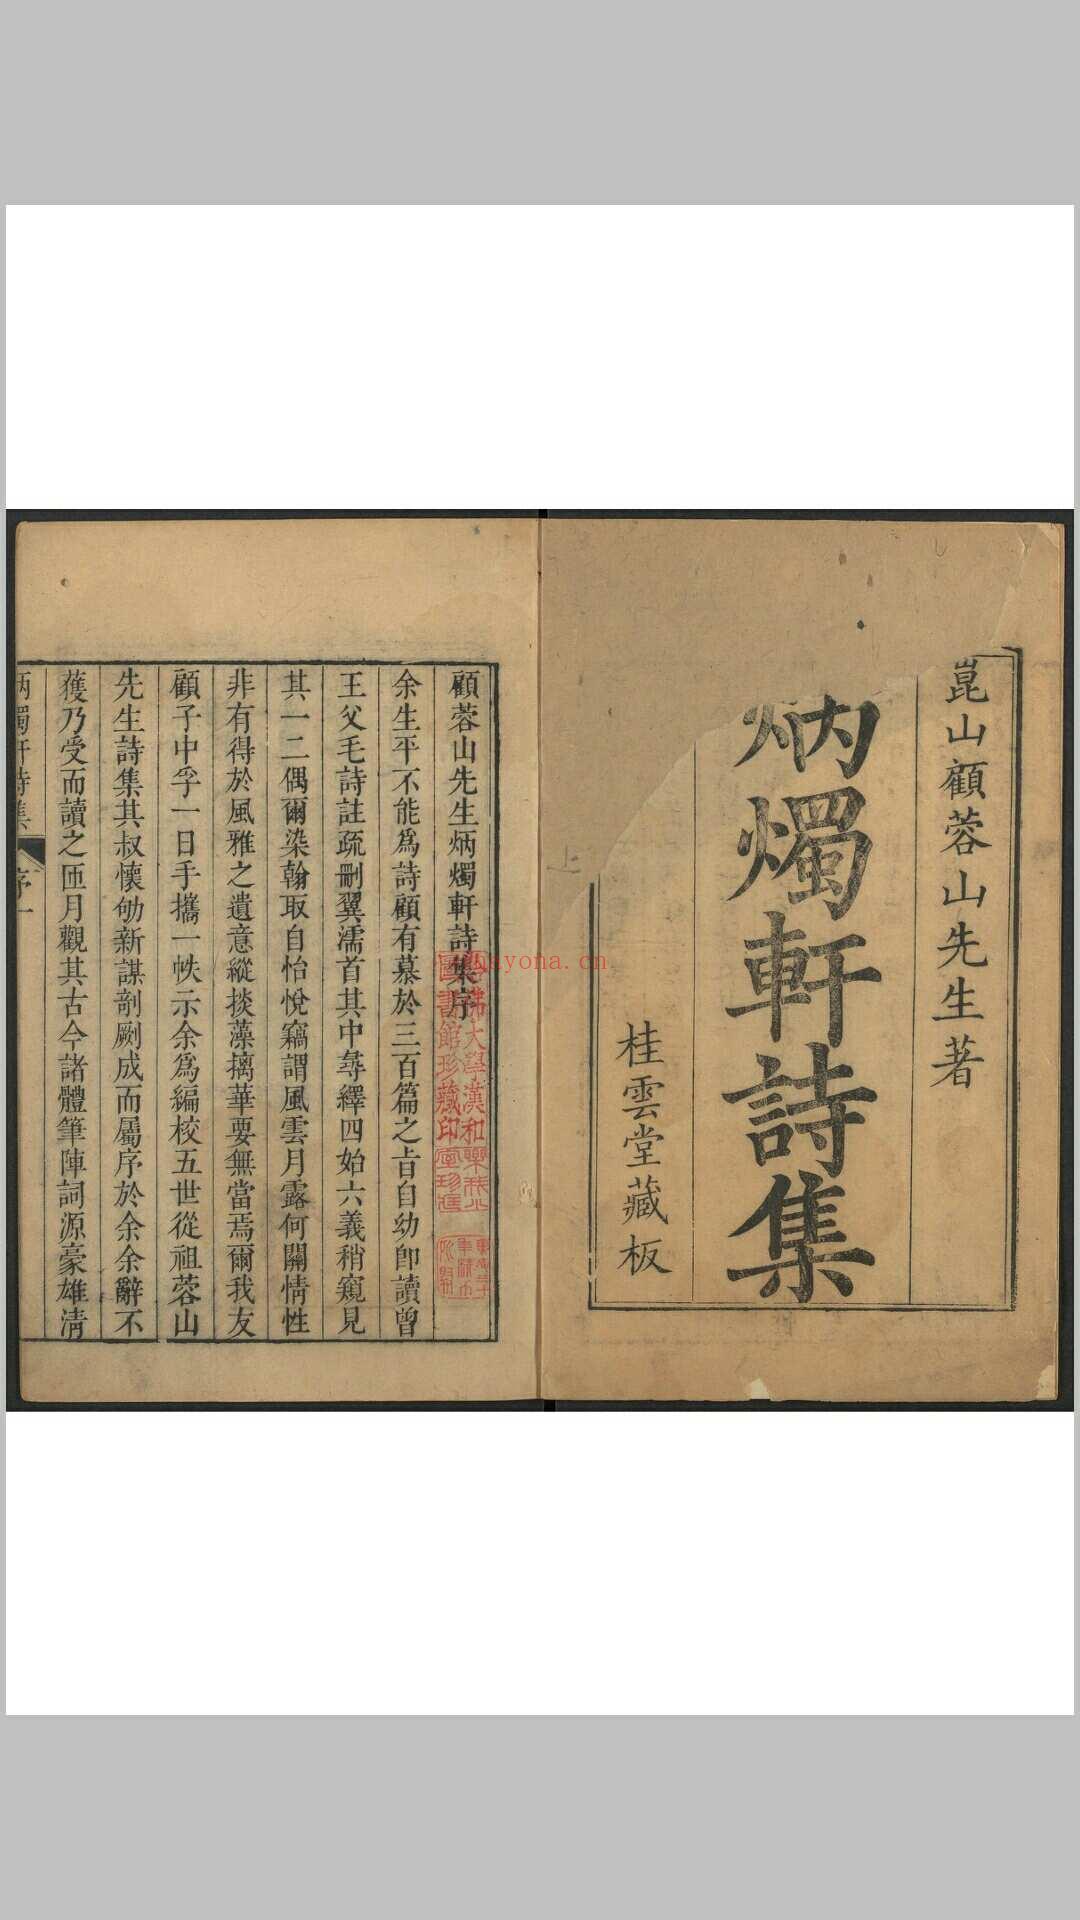 崑山顧蓉山先生著
炳燭軒詩集
桂雲堂藏板
上
顧蓉山先生炳燭軒詩集序
余生平不能爲詩顧有慕於三百篇之旨自幼卽讀曾
王父毛詩註疏刪翼濡首其中尋繹四始六義稍窺見
其一二偶爾染翰取自怡悅竊謂風雲月露何關情性
非有得於風雅之遺意縱掞藻摛華要無當焉爾我友
顧子中孚一日手攜一帙示余爲編校五世從祖蓉山
先生詩集其叔懷劬新謀剞劂成而屬序於余余辭不
獲乃受而讀之匝月觀其古今諸體筆陣詞源豪雄淸
炳燭軒詩集
序一
哈佛大學漢和
圖書館珍藏印
ayona.cn